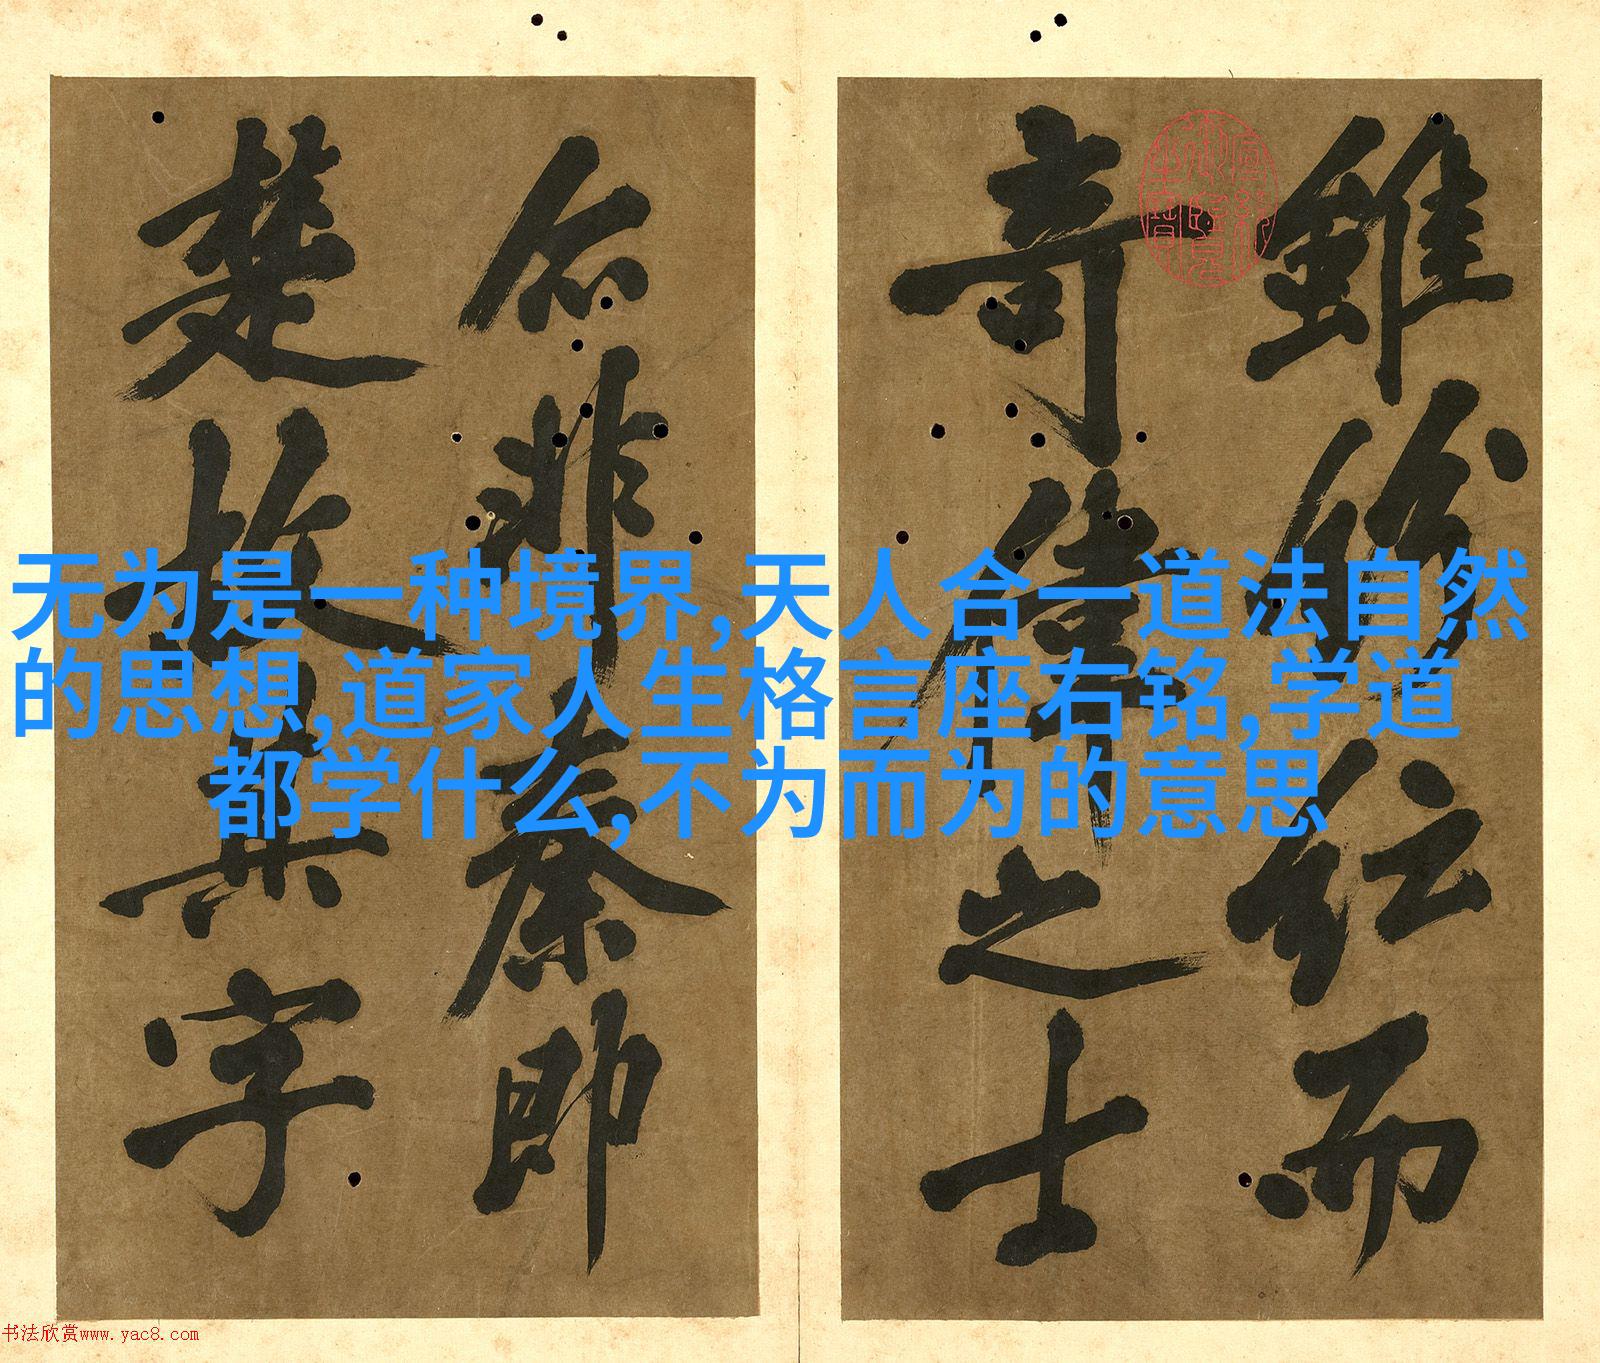 雖紛紜而
奇偉之士
非秦即
楚故其字
无为是一种境界,天人合一道法自然
的思想,道家人生格言座右铭,学道
都学什么,不为而为的意思
书法欣赏www.yac8.com